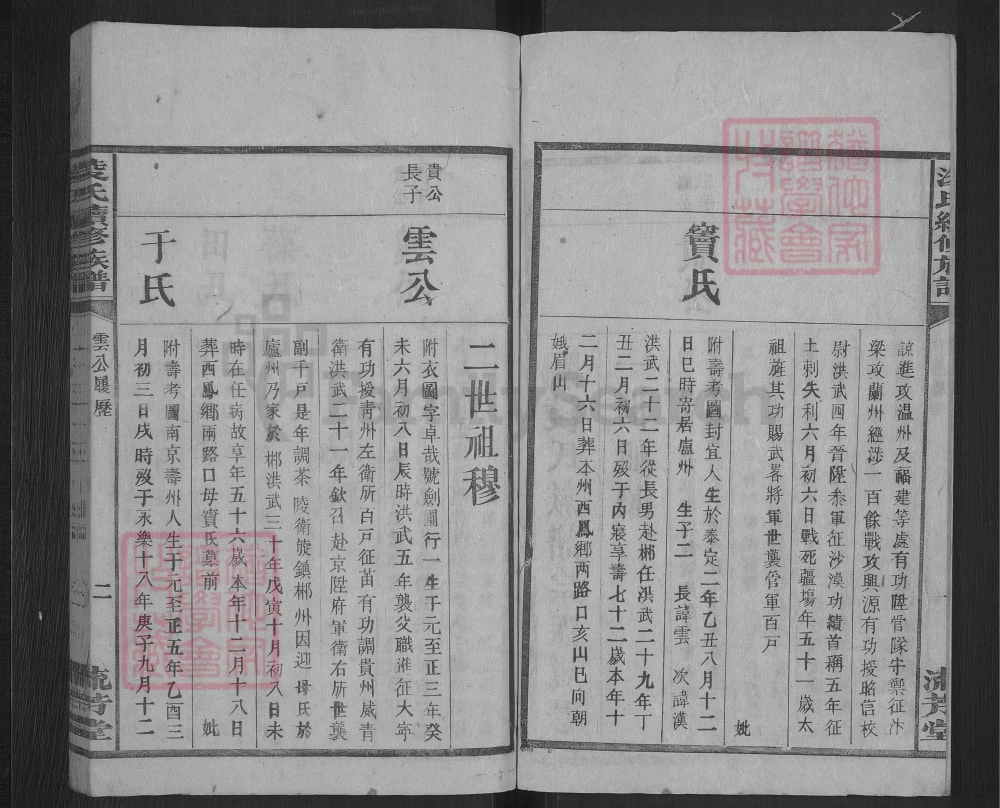 諒進攻温州及福建等處有功陞嘗隊宇禦征汴
梁攻蘭州經涉一百餘戰攻興源有功授昭信校
尉洪武四年晉陞叅軍征沙漠功績首稱五年征
土剌失利六月初六日戰死疆塲年五十一歲太
祖旌其功賜武畧將軍世襲管軍百戸
妣
竇氏
附壽考圖封宜人生於泰定二年乙丑八月十二
日巳時寄居廬州 生子二 長諱雲 次諱漢
洪武二十二年從長男赴郴任洪武二十九年丁
丑二月初六日歿于內寢享壽七十二歲本年十
二月十六日葬本州西鳳鄉两路口亥山巳向朝
娥眉山
流芳堂
二世祖穆
貴公
長子
雲公
附衣圖字卓哉號劍圃行一生于元至正三年癸
未六月初八日辰時洪武五年襲父職進征大寧
有功授靑州左衛所百戸征苗有功調貴州威青
衛洪武二十一年欽召赴京陞府軍衛右所世襲
副千戸是年調茶陵衛旋鎮郴州因迎母氏於
廬州乃家於郴洪武三十年戊寅十月初八日未
時在任病故享年五十六歲本年十二月十八日
葬西鳳鄉兩路口母竇氏墓前 妣
于氏
附壽考圖南京壽州人生于元至正五年乙酉三
月初三日戌時歿于永樂十八年庚子九月十二
氏續修族譜
雲公履歷
二
流芳堂